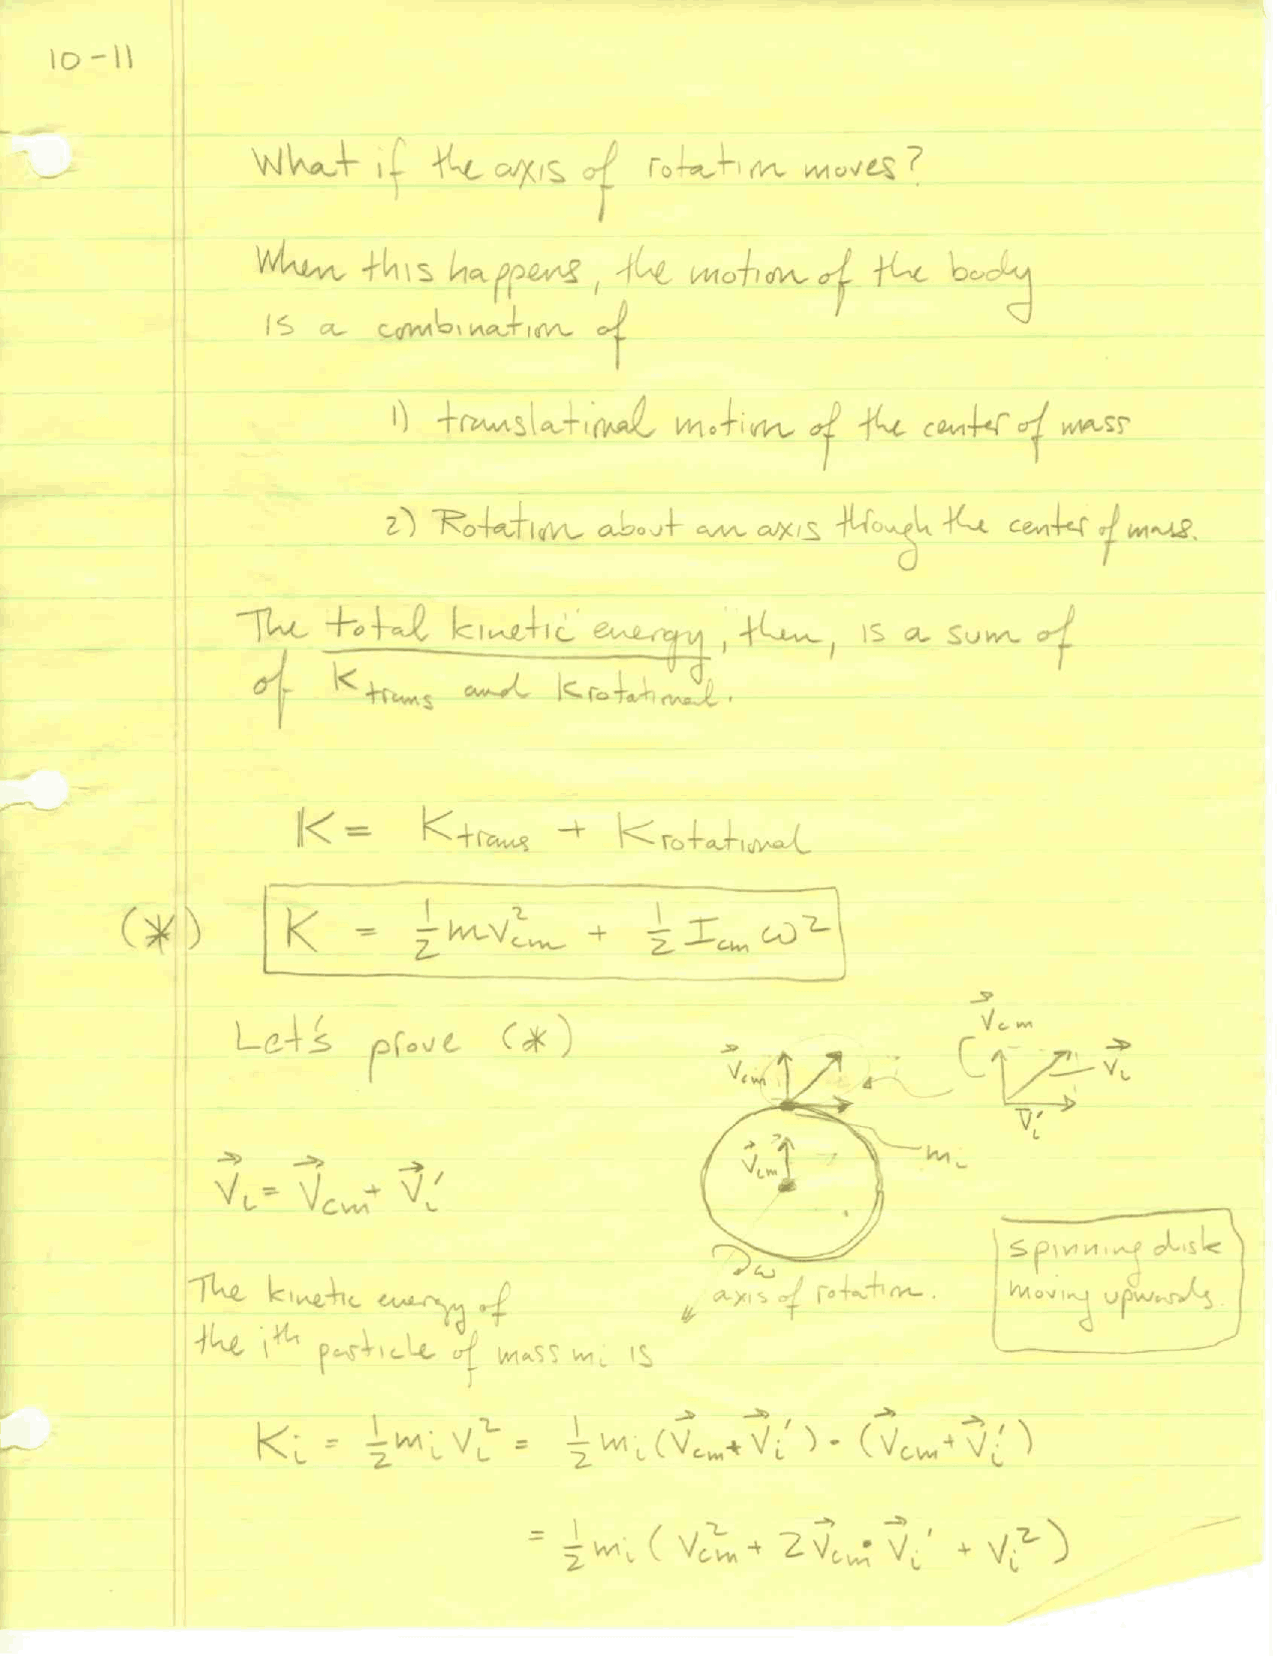 10-11
What if the axis of rotation moves?
When this happens, the motion of the body
is a combination of
1) translational motion of the center of mass
2) Rotation about an axis through the center of mass.
The total kinetic energy, then, is a sum of
of K trans and K rotational.
K = K trans + K rotational
(*) K = 1/2 m v²cm + 1/2 I cm ω²
Let's prove (*)
v⃗cm
v⃗cm
v⃗i
v⃗i'
mi
v⃗cm
v⃗i = v⃗cm + v⃗i'
ω
axis of rotation.
spinning disk
moving upwards.
The kinetic energy of
the ith particle of mass mi is
Ki = 1/2 mi vi² = 1/2 mi (v⃗cm + v⃗i') · (v⃗cm + v⃗i')
= 1/2 mi (v²cm + 2 v⃗cm · v⃗i' + vi²)